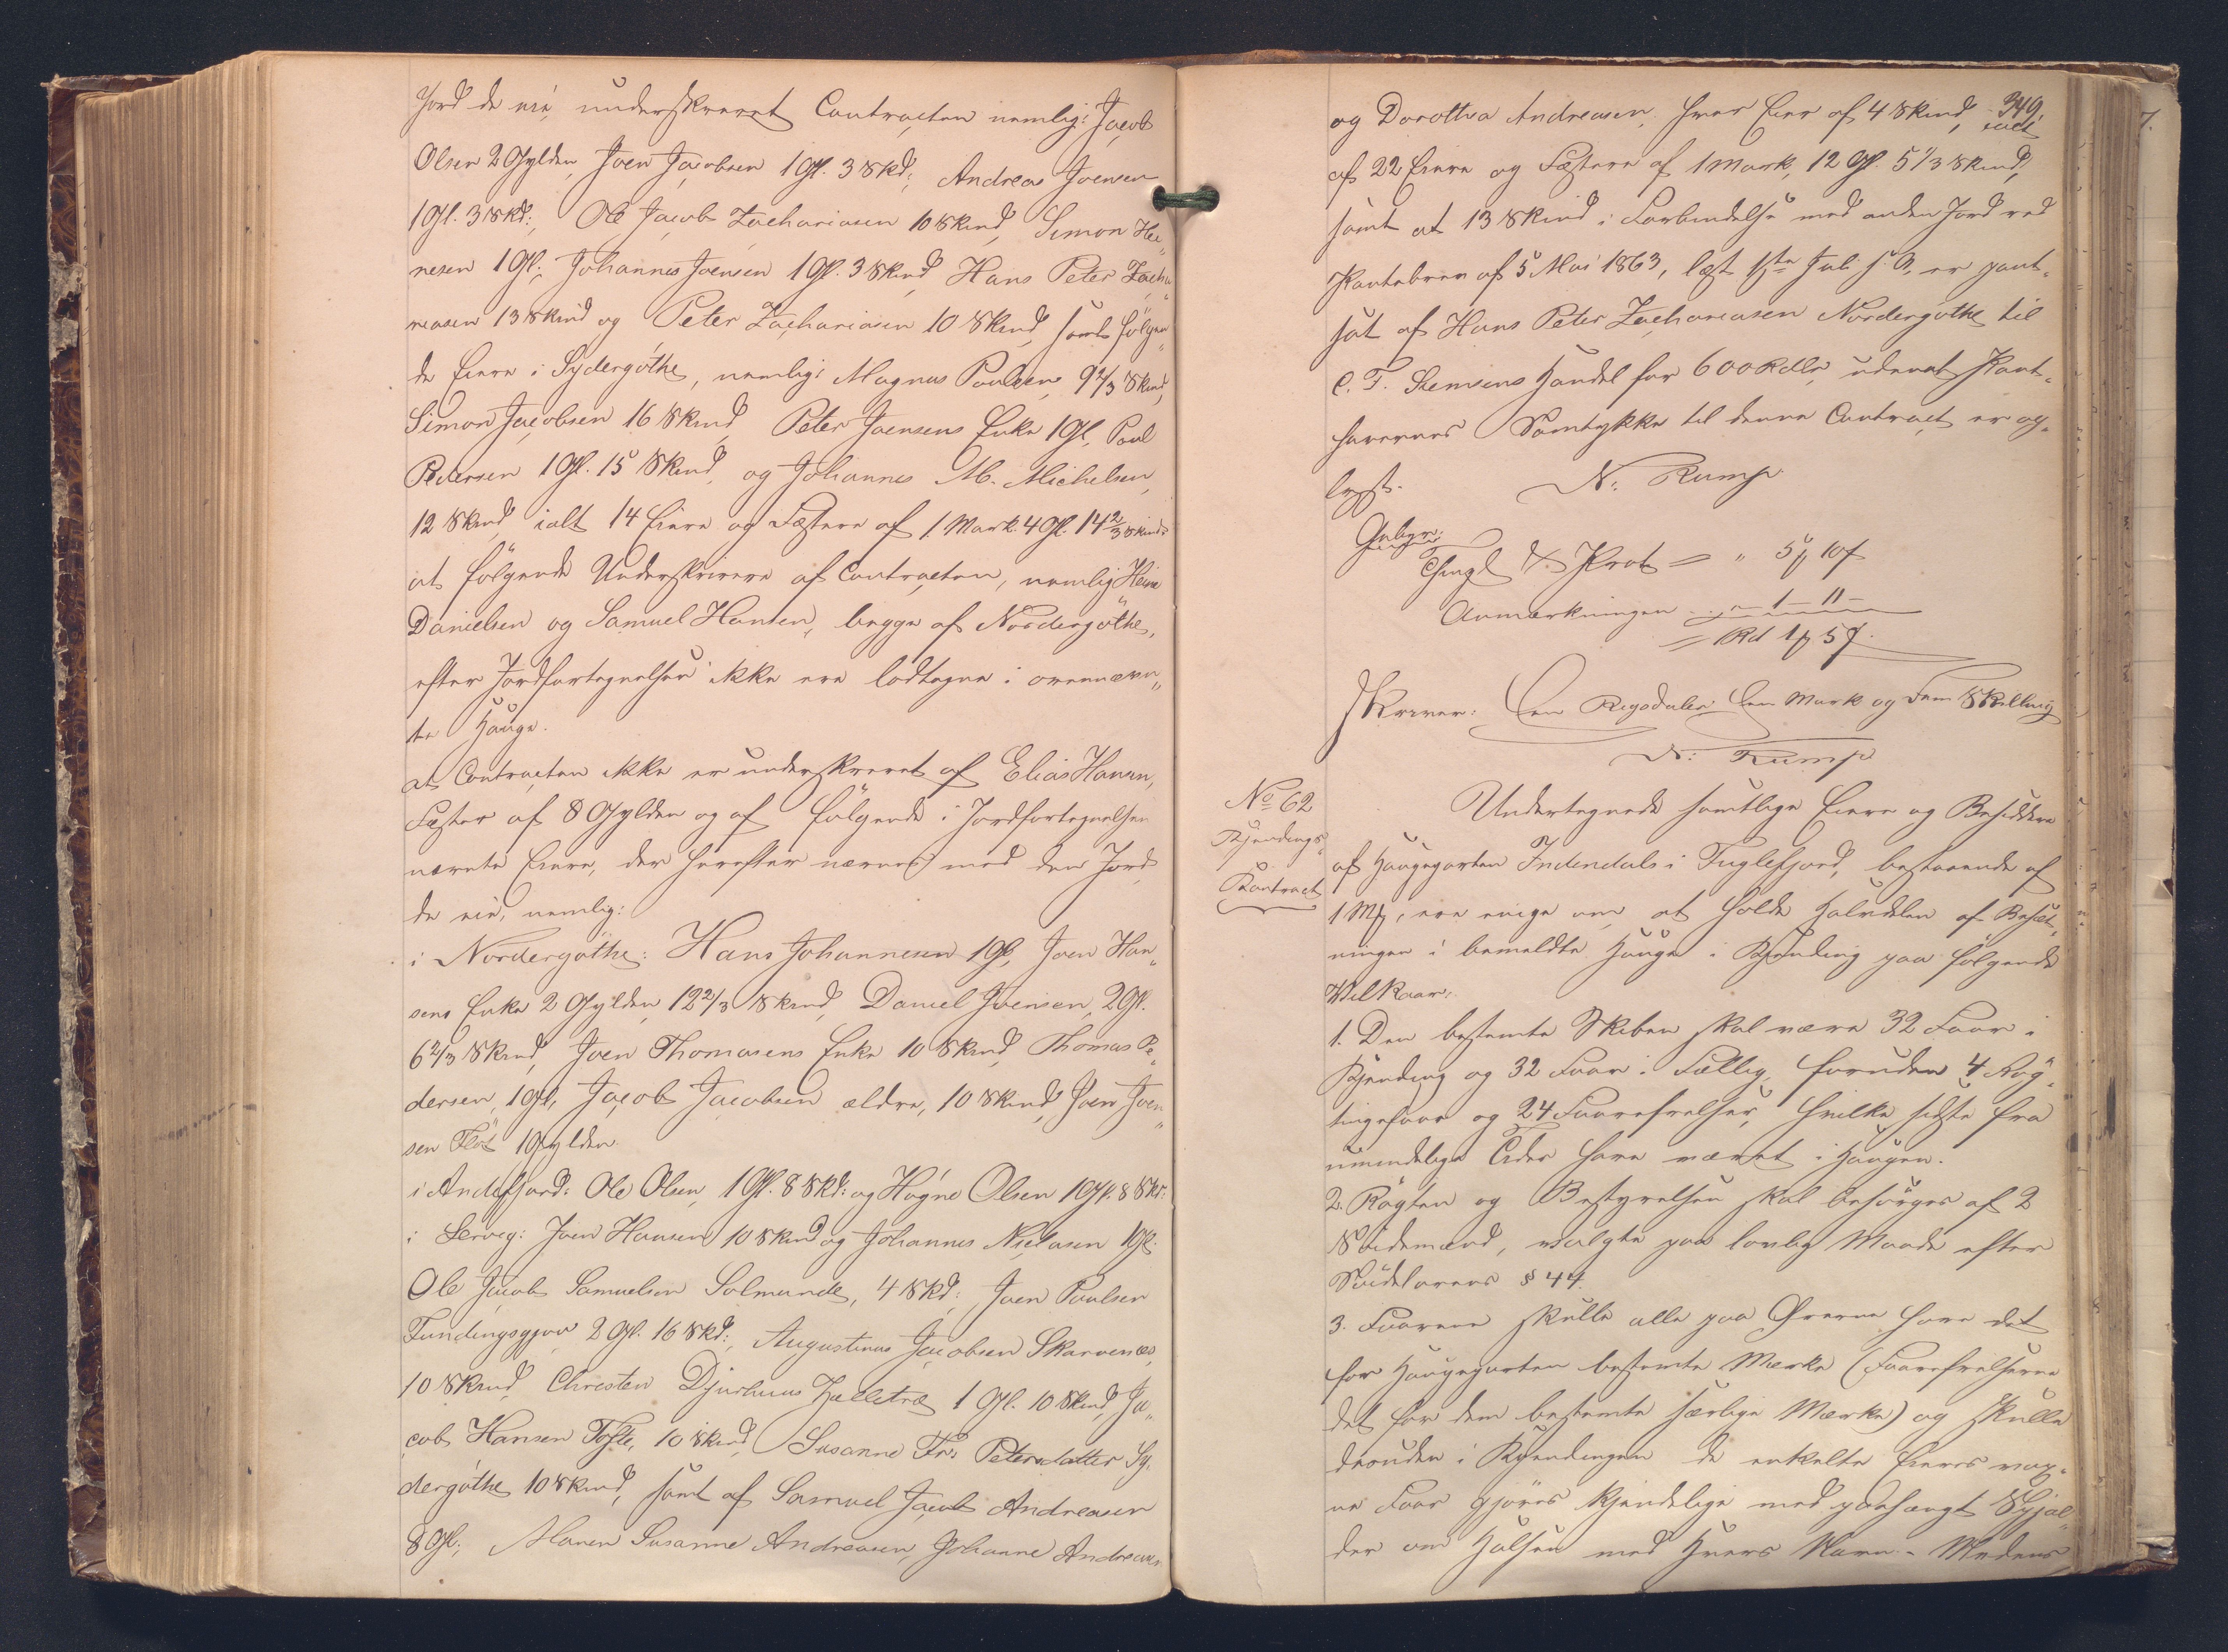 Jord de eie, underskrevet Contracten nemlig: Jacob
Olsen 2 Gylden, Joen Jacobsen 1 Gl. 3 Skd:, Andreas Joensen
1 Gl. 3 Skd:, Ole Jacob Zachariasen 10 Skind, Simon Hei„
nesen 1 Gl:, Johannes Joensen 1 Gl. 3 Skind, Hans Peter Zacha„
riasen 13 Skind og Peter Zachariasen 10 Skind, samt følgen„
de Eiere i Sydergøthe, nemlig: Magnus Poulsen 9 2/3 Skind,
Simon Jacobsen 16 Skind, Peter Joensens Enke 1 Gl, Poul
Pedersen 1 Gl. 15 Skind, og Johannes M. Michelsen,
12 Skind, ialt 14 Eiere og Fæstere af 1 Mark. 4 Gl. 14 2/3 Skind:
at følgende Underskrivere af Contracten, nemlig Heine
Danielsen og Samuel Hansen, begge af Nordergøthe,
efter Jordfortegnelsen ikke ere lodtagne i ovennævn„
te Hauge.
at Contracten ikke er underskrevet af Elias Hansen,
Fæster af 8 Gylden og af følgende i Jordfortegnelsen
nævnte Eiere, der herefter nævnes med den Jord
de eie, nemlig:
i Nordergøthe: Hans Johannesen 1 Gl, Joen Han„
sens Enke 2 Gylden 12 2/3 Skind, Daniel Joensen, 2 Gl.
6 2/3 Skind, Joen Thomasens Enke 10 Skind, Thomas Pe„
dersen, 1 Gl, Jacob Jacobsen ældre, 10 Skind, Joen Joen„
sen Fløt 1 Gylden
i Andefjord: Ole Olsen, 1 Gl. 8 Skd: og Høgne Olsen 1 Gl. 8 Skd:
i Lervig: Joen Hansen 10 Skind og Johannes Nielasen 1 Gl:
Ole Jacob Samuelsen Solmunde, 4 Skd: Joen Poulsen
Fundingsgjov 2 Gl. 16 Skd:, Augustinus Jacobsen Skarvenæs,
10 Skind, Christen Djurhuus 1 Gl. 10 Skind, Ja„
cob Hansen Tofte, 10 Skind, Susanne Fr: Petersdatter Sy„
dergøthe 10 Skind, samt af Samuel Jacob Andreasen
8 Gl:, Maren Susanne Andreasen, Johanne Andreasen
349.
og Dorothea Andreasen, hver Eier af 4 Skind, ialt
af 22 Eiere og Fæstere af 1 Mark, 12 Gl. 5 1/3 Skind,
samt at 13 Skind i Forbindelse med anden Jord ved
Pantebrev af 5 Mai 1863, læst 1ste Juli s. A, er pant„
sat af Hans Peter Zachariasen Nordergøthe til
C. F. Siemsens Handel for 600 Rdlr, uden at Pant„
haverens Samtykke til denne Contract er op„
lyst.
N: Rump
Gebyr:
Thingl & Prot = " 5 ₰ 10 ß
Anmærkningen - " - 1 - 11 -
= Rd 1 ₰ 5 ß.
Skriver: Een Rigsdaler Een Mark og Fem Skilling
N: Rump
No 62
Kjendings„
Kontract
Undertegnede samtlige Eiere og Besiddere
af Haugeparten Indendals i Fuglefjord, bestaaende af
1 Mk, ere enige om, at holde Halvdelen af Besæt„
ningen i bemeldte Hauge i Kjending paa følgende
Vilkaar:
1. Den bestemte Skiben skal være 32 Faar i
Kjending og 32 Faar i Fællig, foruden 4 Røg„
tingsfaar og 24 Faarefrelser, hvilke sidste fra
umindelige Tider have været i Haugen.
2. Røgten og Bestyrelsen skal besørges af 2
Skidemænd, valgte paa lovlig Maade efter
Seidelovens § 44.
3. Faarene skulle alle paa Ørerne have det
for Haugeparten bestemte Mærke (Faarefrelserne
det for dem bestemte særlige Mærke) og skulle
desuden i Kjendingen de enkelte Eieres vox„
ne Faar gjøres kjendelige med paahængt Spjal„
der om Halsen med Hvers Navn. - Medens